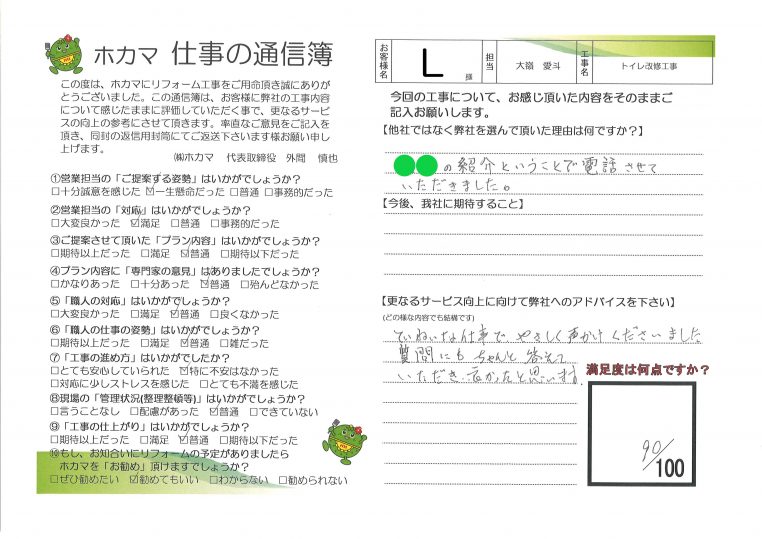 ホカマ 仕事の通信簿
この度は、ホカマにリフォーム工事をご用命頂き誠にありが
とうございました。この通信簿は、お客様に弊社の工事内容
について感じたままに評価していただく事で、更なるサービ
スの向上の参考にさせて頂きます。率直なご意見をご記入を
頂き、同封の返信用封筒にてご返送下さいます様お願い申し
上げます。
㈱ホカマ 代表取締役 外間 慎也
①営業担当の「ご提案する姿勢」はいかがでしょうか？
□十分誠意を感じた ☑一生懸命だった □普通 □事務的だった
②営業担当の「対応」はいかがでしょうか？
□大変良かった ☑満足 □普通 □事務的だった
③ご提案させて頂いた「プラン内容」はいかがでしょうか？
□期待以上だった □満足 ☑普通 □期待以下だった
④プラン内容に「専門家の意見」はありましたでしょうか？
□かなりあった □十分あった ☑普通 □殆んどなかった
⑤「職人の対応」はいかがでしょうか？
□大変良かった □満足 ☑普通 □良くなかった
⑥「職人の仕事の姿勢」はいかがでしょうか？
□期待以上だった □満足 ☑普通 □雑だった
⑦「工事の進め方」はいかがでしたか？
□とても安心していられた ☑特に不安はなかった
□対応に少しストレスを感じた □とても不満を感じた
⑧現場の「管理状況(整理整頓等)」はいかがでしょうか？
□言うことなし □配慮があった ☑普通 □できていない
⑨「工事の仕上がり」はいかがでしょうか？
□期待以上だった □満足 ☑普通 □期待以下だった
⑩もし、お知合いにリフォームの予定がありましたら
ホカマを「お勧め」頂けますでしょうか？
□ぜひ勧めたい ☑勧めてもいい □わからない □勧められない
お客様名 L 様 担当 大嶺 愛斗 工事名 トイレ改修工事
今回の工事について、お感じ頂いた内容をそのままご
記入お願いします。
【他社ではなく弊社を選んで頂いた理由は何ですか？】
の紹介ということで電話させて
いただきました。
【今後、我社に期待すること】
【更なるサービス向上に向けて弊社へのアドバイスを下さい】
(どの様な内容でも結構です)
ていねいな仕事で やさしく声かけくださいました
質問にも ちゃんと 答えて
いただき、良かったと思います。
満足度は何点ですか？
90/100